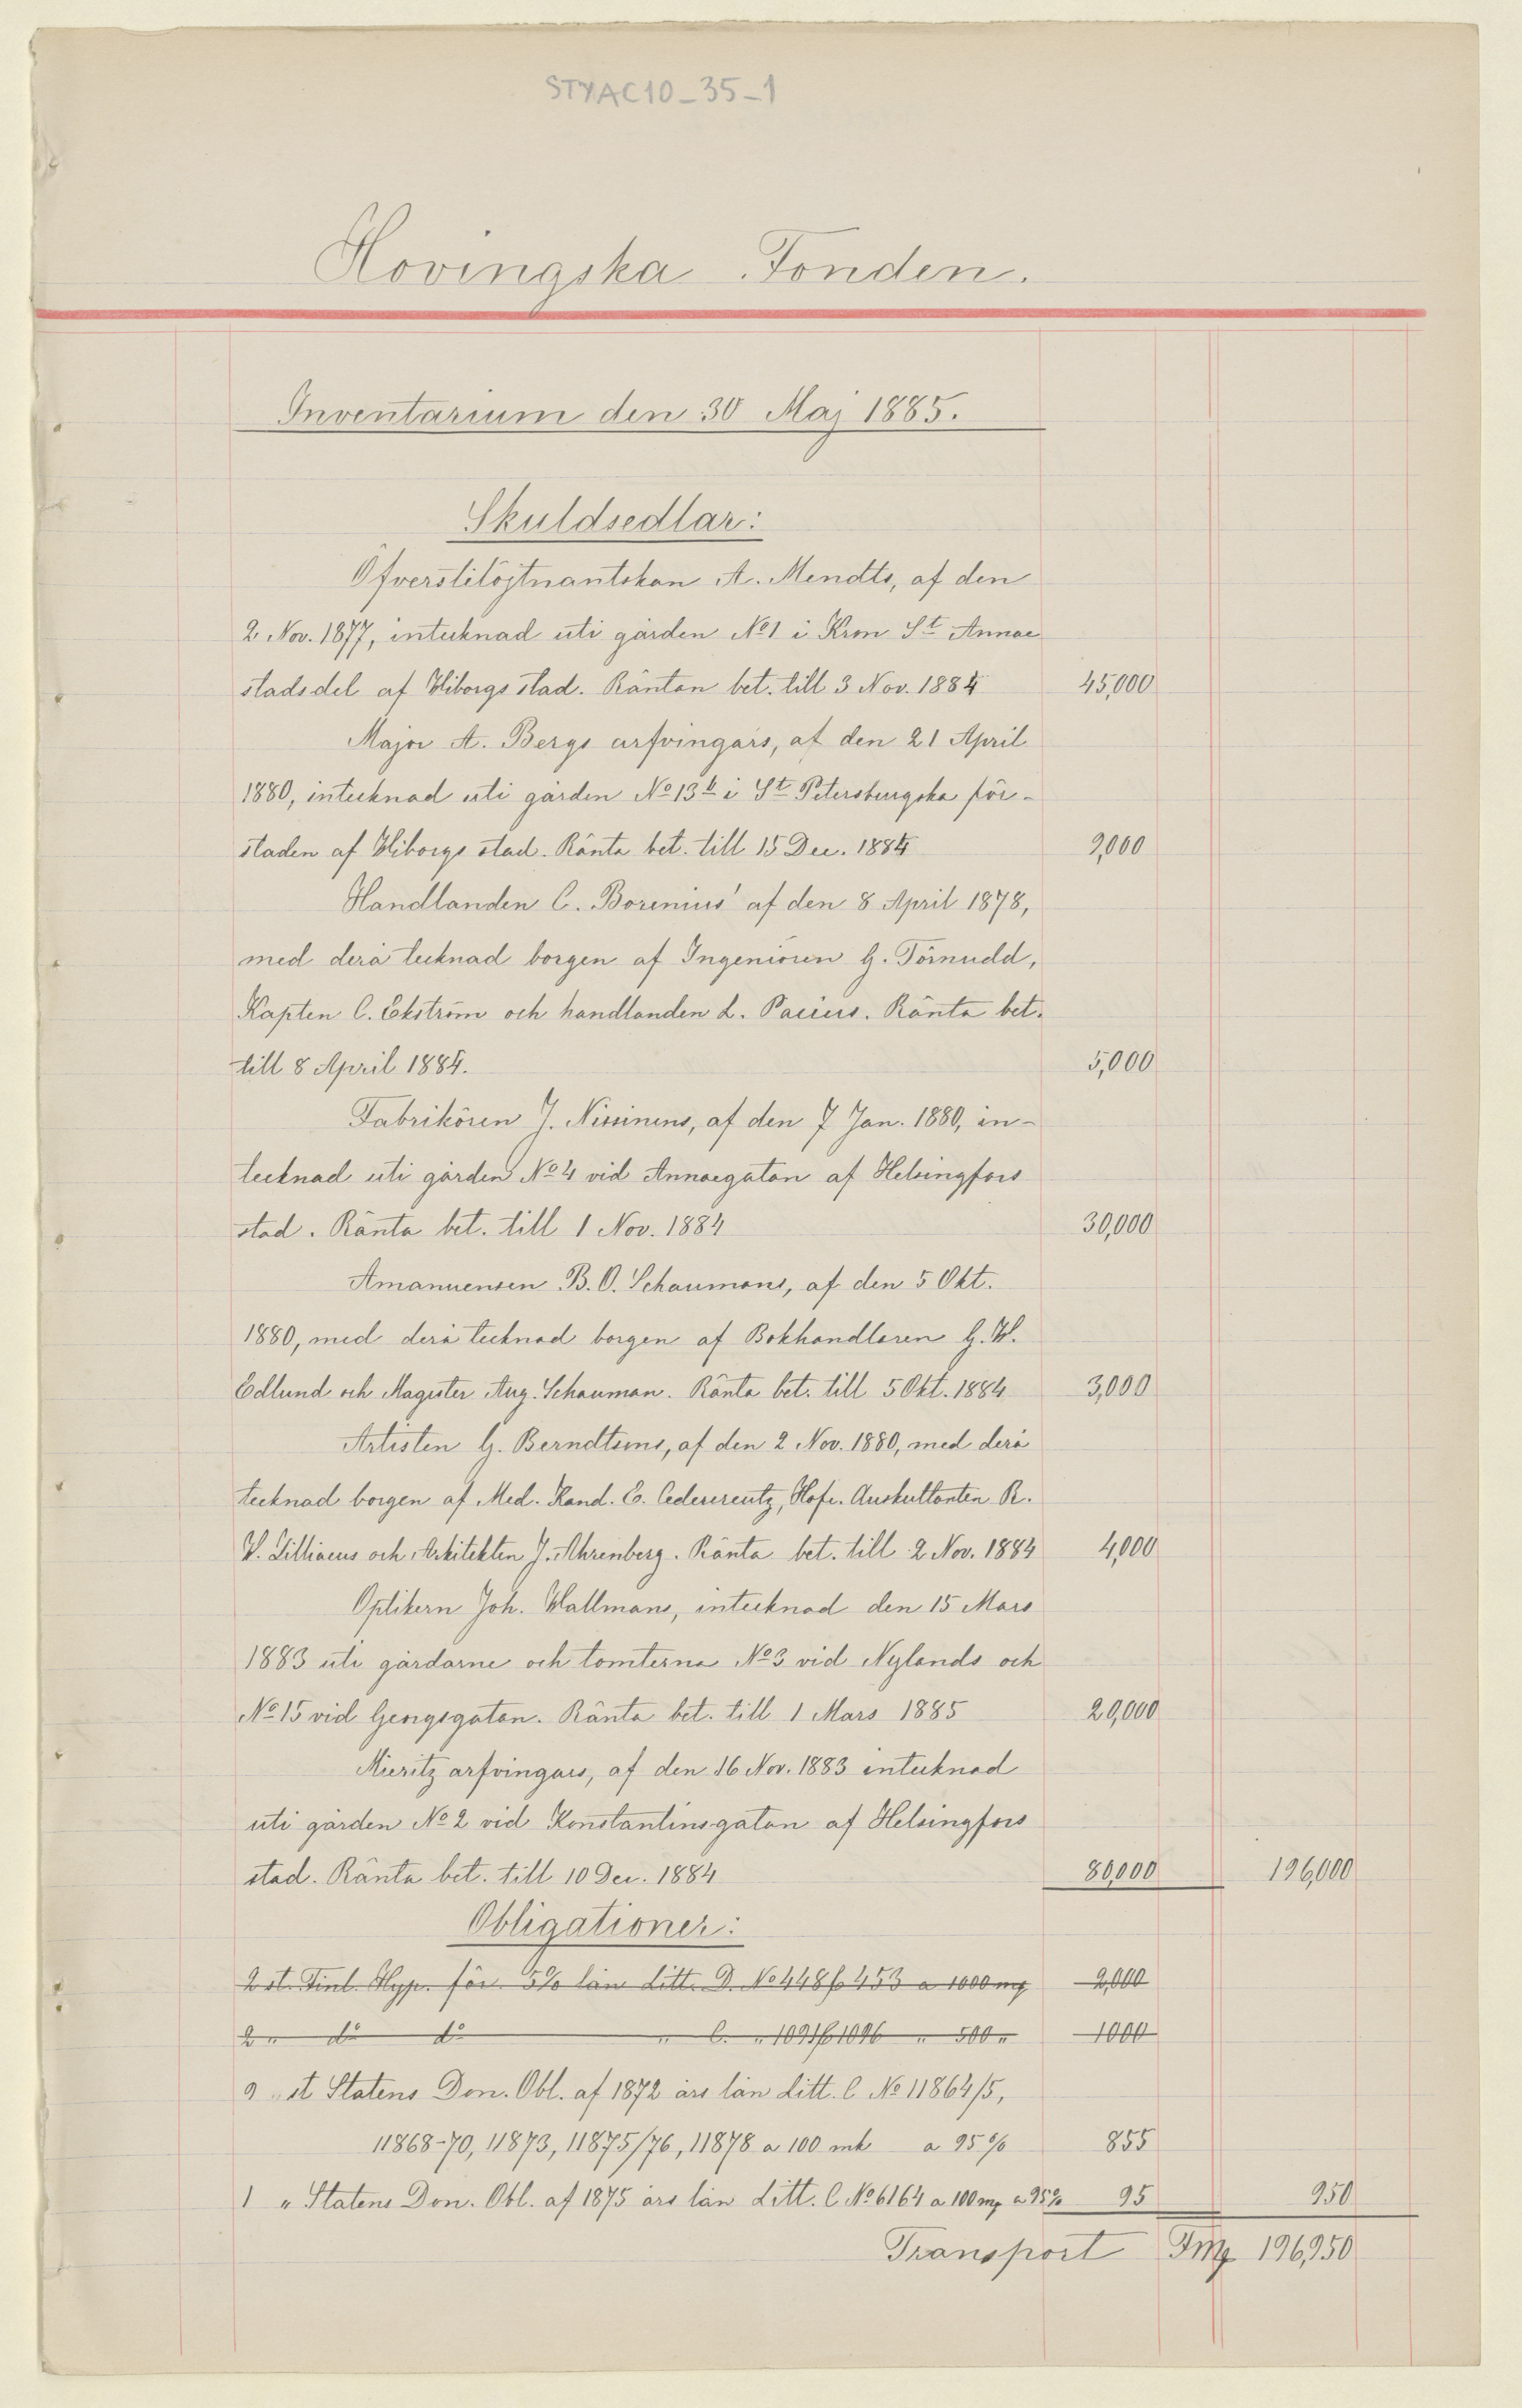 STYAC10_35_1
Hovingska Fonden.
Inventarium den 30 Maj 1885.
Skuldsedlar:
Öfverstelöjtnantskan A. Mendts, af den
2 Nov. 1877, intecknad uti gården No 1 i Kron St Annae
stadsdel af Wiborgs stad. Räntan bet. till 3 Nov. 1884 45,000
Major A. Bergs arfvingars, af den 21 April
1880, intecknad uti gården No 13b i St Petersburgska för-
staden af Wiborgs stad. Ränta bet. till 15 Dec. 1884 9,000
Handlanden C. Borenius' af den 8 April 1878,
med derå tecknad borgen af Ingeniören G. Törnudd,
Kapten C. Ekström och handlanden L. Pacius. Ränta bet.
till 8 April 1884. 5,000
Fabrikören J. Nissinens, af den 7 Jan. 1880, in-
tecknad uti gården No 4 vid Annaegatan af Helsingfors
stad. Ränta bet. till 1 Nov. 1884 30,000
Amanuensen B. O. Schaumans, af den 5 Okt.
1880, med derå tecknad borgen af Bokhandlaren G. W.
Edlund och Magister Aug. Schauman. Ränta bet. till 5 Okt. 1884 3,000
Artisten G. Berndtsons, af den 2 Nov. 1880, med derå
tecknad borgen af Med. Kand. E. Cedercreutz, Hofr. Auskultanten R.
W. Lilliacus och Arkitekten J. Ahrenberg. Ränta bet. till 2 Nov. 1884 4,000
Optikern Joh. Wallmans, intecknad den 15 Mars
1883 uti gårdarne och tomterna No 3 vid Nylands och
No 15 vid Georgsgatan. Ränta bet. till 1 Mars 1885 20,000
Mieritz arfvingars, af den 16 Nov. 1883 intecknad
uti gården No 2 vid Konstantinsgatan af Helsingfors
stad. Ränta bet. till 10 Dec. 1884 80,000 196,000
Obligationer:
2 st. Finl. Hyp. för. 5% lån Litt. D. No 448/453 a 1000 mk 2,000
2 " do do " C. " 1091/1096 " 500 " 1000
9 " st Statens Don. Obl. af 1872 års lån Litt. C No 11864/5,
11868-70, 11873, 11875/76, 11878 a 100 mk a 95% 855
1 " Statens Don. Obl. af 1875 års lån Litt. C No 6164 a 100 mk a 95% 95 950
Transport Fmk 196,950